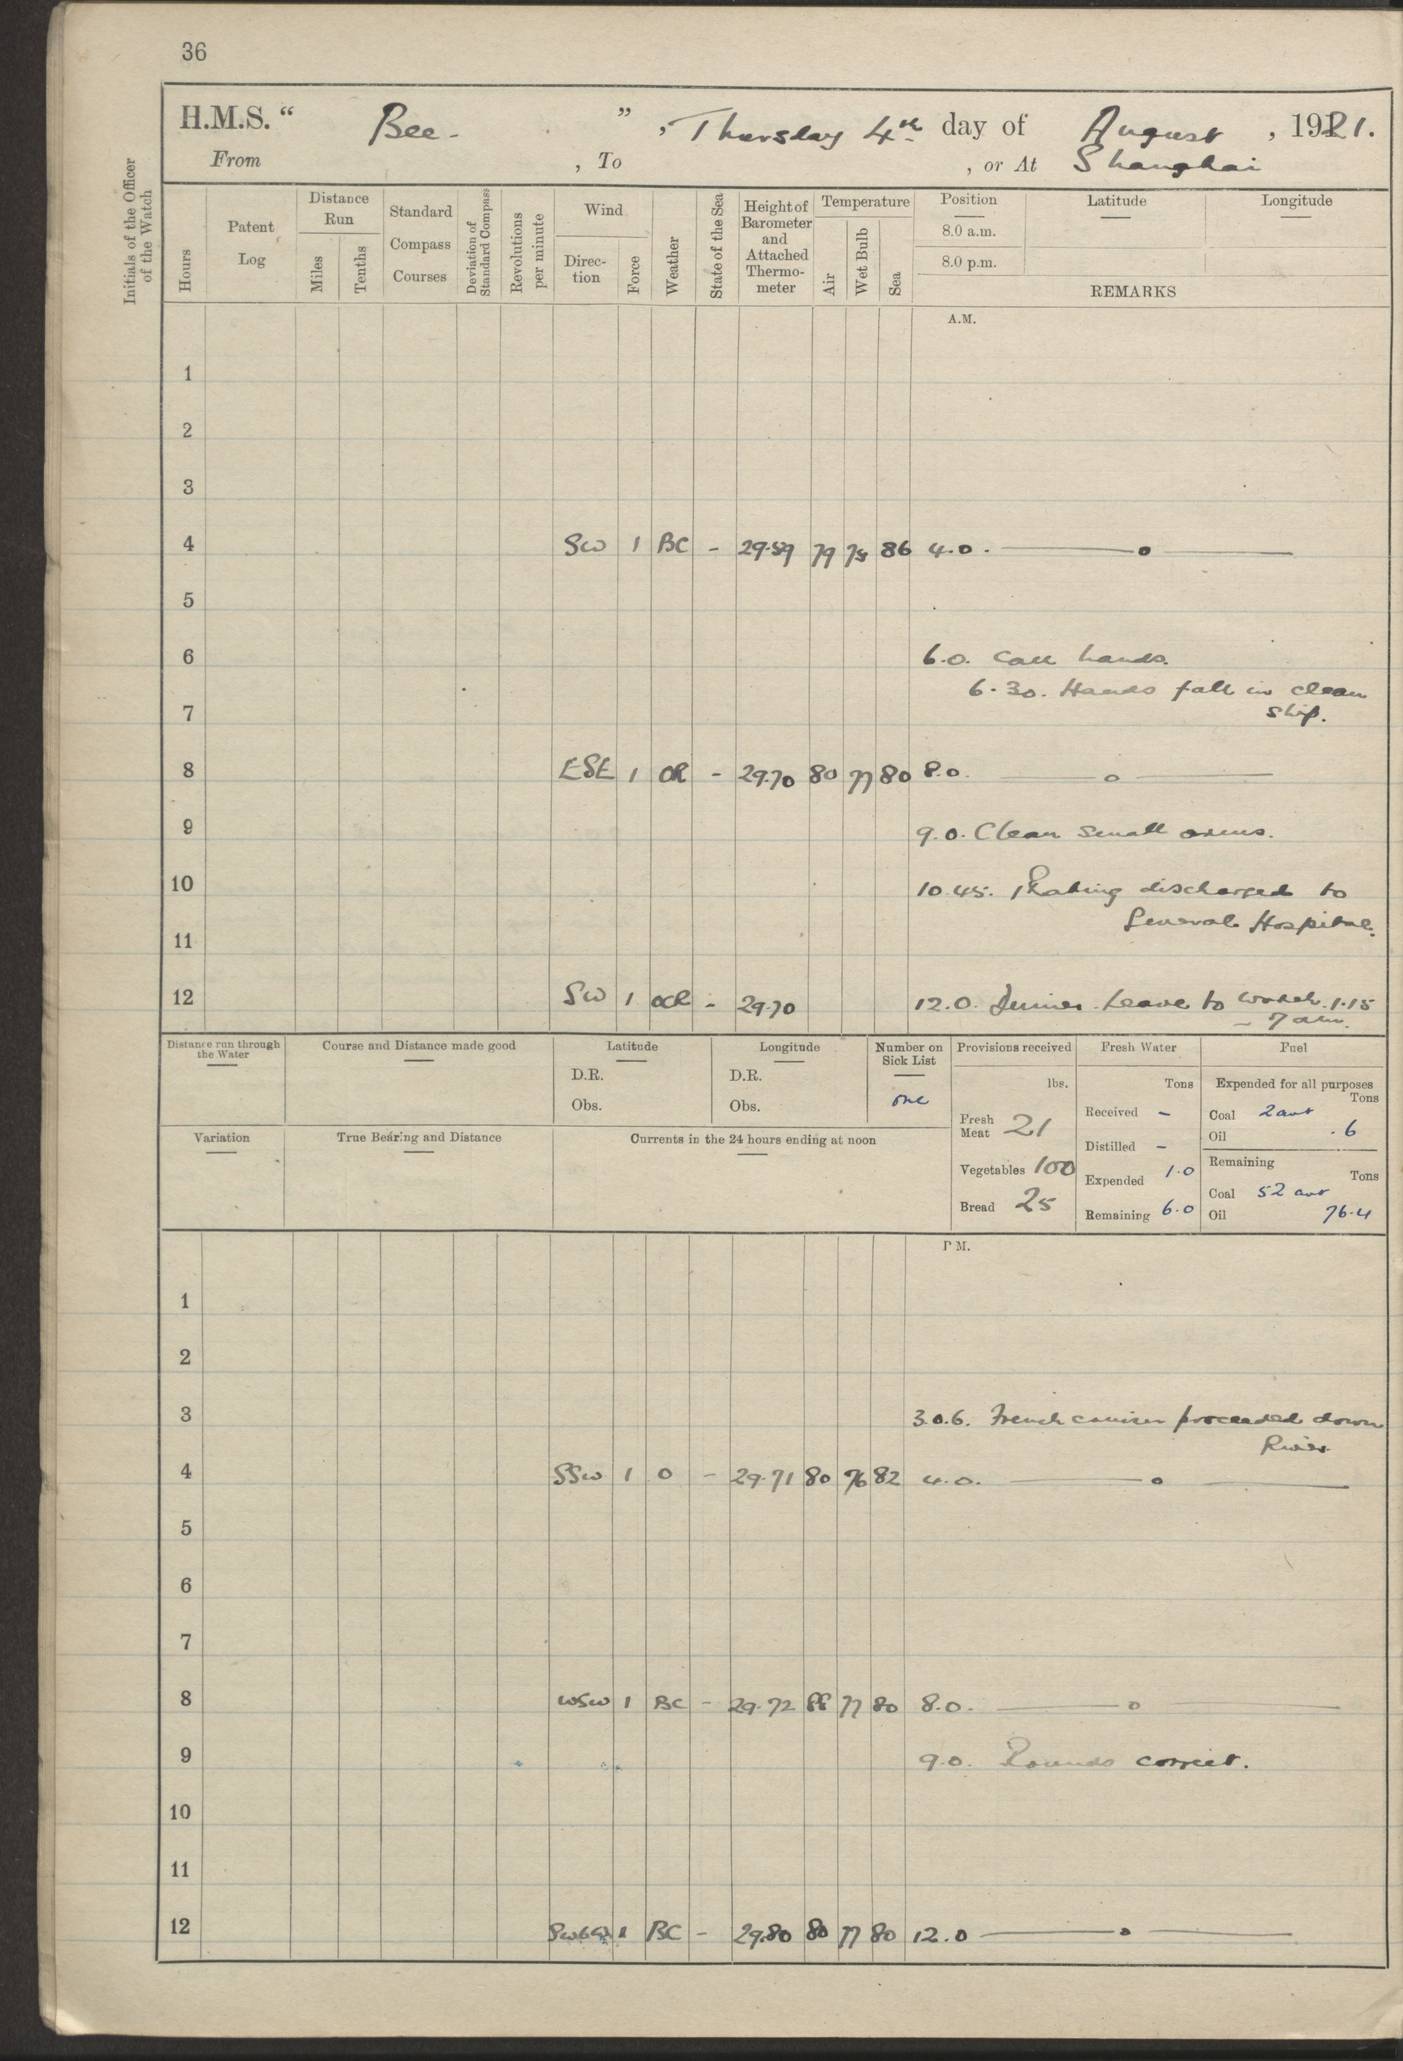 36
H.M.S. " Bee- ", Thursday 4th day of August, 1921.
From , To , or At Shanghai
Initials of the Officer of the Watch
Hours
Patent Log
Distance Run
Miles
Tenths
Standard Compass Courses
Deviation of Standard Compass
Revolutions per minute
Wind
Direction
Force
Weather
State of the Sea
Height of Barometer and Attached Thermometer
Temperature
Air
Wet Bulb
Sea
Position Latitude Longitude
8.0 a.m.
8.0 p.m.
REMARKS
A.M.
1
2
3
4 SW 1 BC - 29.59 79 75 86 4.0. — o —
5
6 6.0. Call hands.
6.30. Hands fall in clean
7 ship.
8 ESE 1 OR - 29.70 80 77 80 8.0. — o —
9 9.0. Clean small arms.
10 10.45. 1 Rating discharged to
General Hospital.
11
12 SW 1 OCR - 29.70 12.0. Dinner. Leave to watch 1.15
- 7 am.
Distance run through the Water
Course and Distance made good
Latitude
D.R.
Obs.
Longitude
D.R.
Obs.
Number on Sick List
one
Variation
True Bearing and Distance
Currents in the 24 hours ending at noon
Provisions received
lbs.
Fresh Meat 21
Vegetables 100
Bread 25
Fresh Water
Tons
Received -
Distilled -
Expended 1.0
Remaining 6.0
Fuel
Expended for all purposes
Tons
Coal 2 cwt
Oil .6
Remaining
Tons
Coal 52 cwt
Oil 76.4
P.M.
1
2
3 3.0.6. French cruiser proceeded down
River
4 SSW 1 O - 29.71 80 76 82 4.0. — o —
5
6
7
8 WSW 1 BC - 29.72 88 77 80 8.0. — o —
9 9.0. Rounds correct.
10
11
12 1 BC - 29.80 80 77 80 12.0 — o —